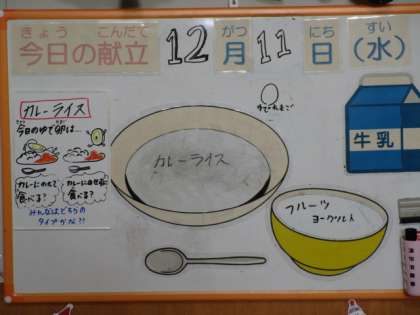 きょう こんだて
今日の献立 12 がつ 11 にち すい
月 日 (水)
ゆでたまご
カレーライス
今日のゆで卵は…
カレーにのせて 食べる?
カレーにのせずに 食べる?
みんなはどちらの
タイプかな??
カレーライス
フルーツ
ヨーグルト
牛乳